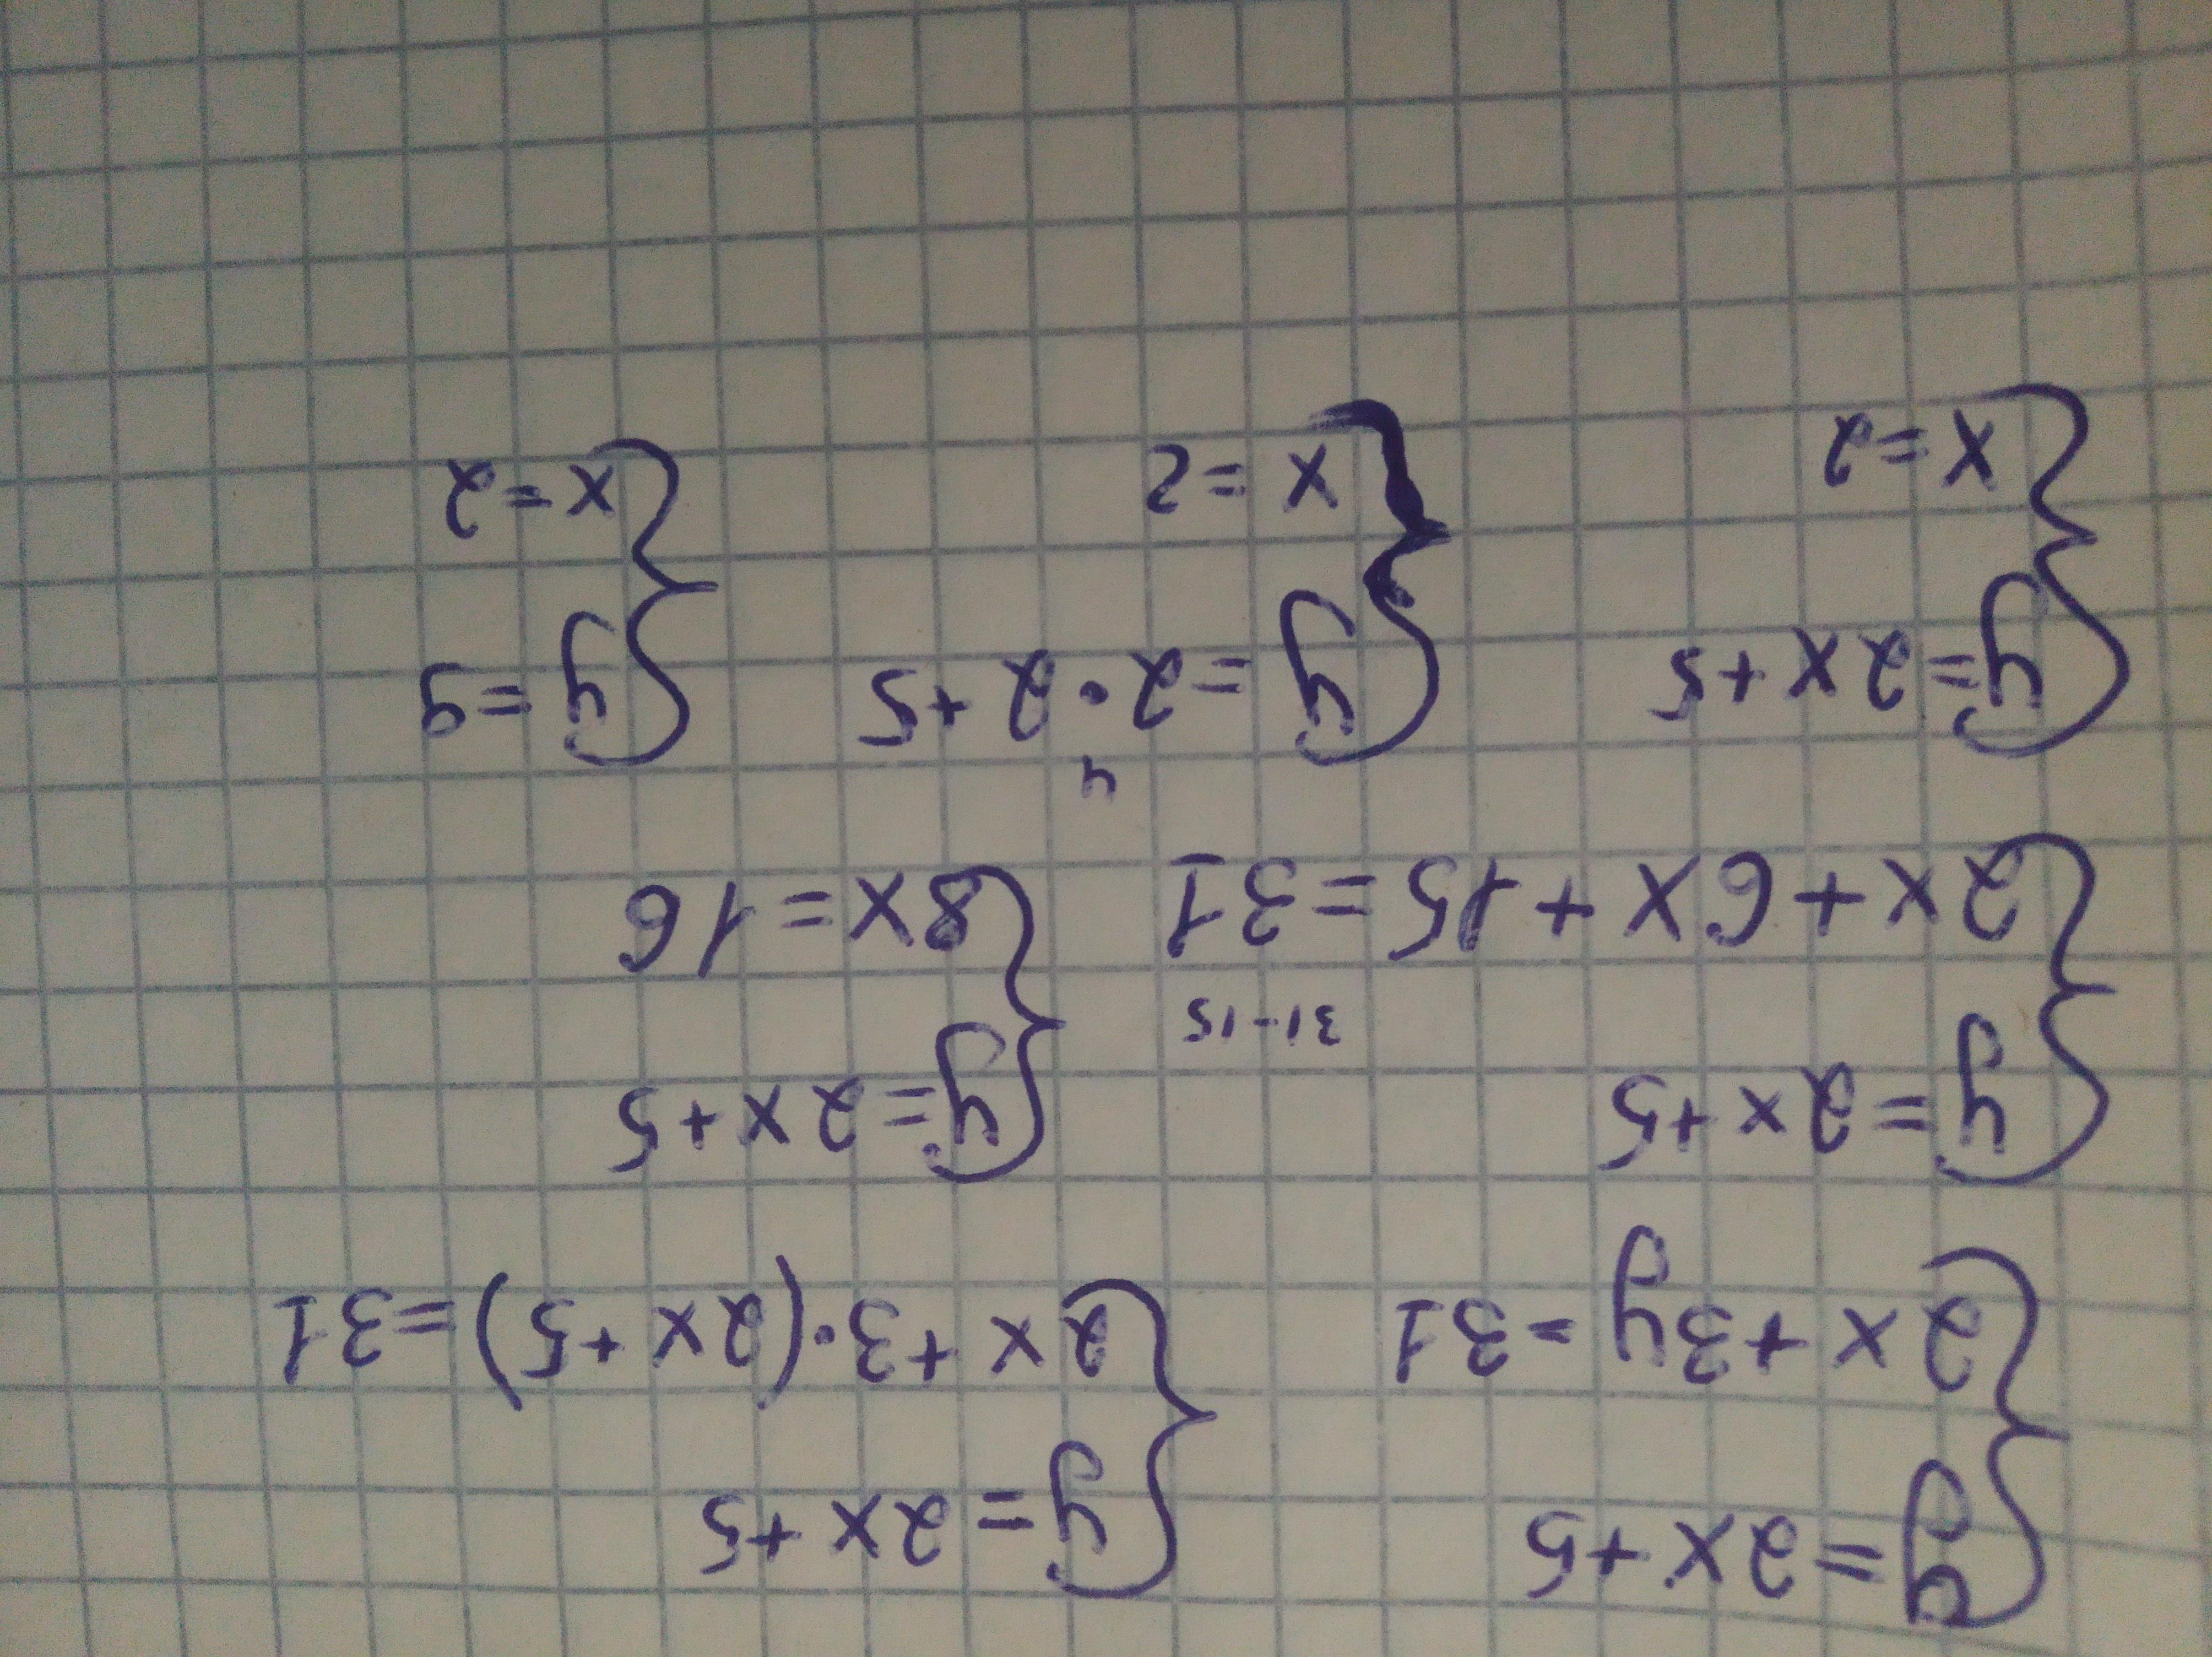 y=2x+5 y=2x+5
2x+3y=31 2x+3·(2x+5)=31
y=2x+5 y=2x+5
31-15
2x+6x+15=31 8x=16
4
y=2x+5 y=2·2+5 y=9
x=2 x=2 x=2